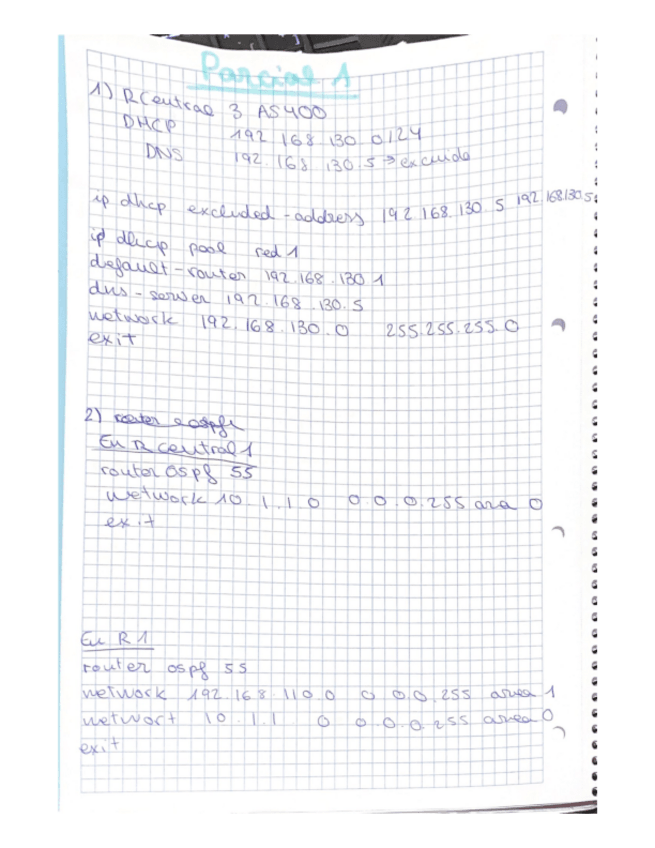 Parcial 1
1) RCentral 3 AS400
DHCP 192 168 130 0/24
DNS 192. 168 130.5 → excluida
ip dhcp excluded-address 192.168.130 5 192.168.130 5
ip dhcp pool red 1
default-router 192.168.130 1
dns-server 192.168.130.5
network 192.168.130.0 255.255.255.0
exit
2) router
En R central 1
router ospf 55
network 10.1.1.0 0 0.0.255 area 0
exit
En R1
router ospf 55
network 192.168.110.0 0 0.0.255 area 1
network 10.1.1 0 0.0.0.255 area 0
exit